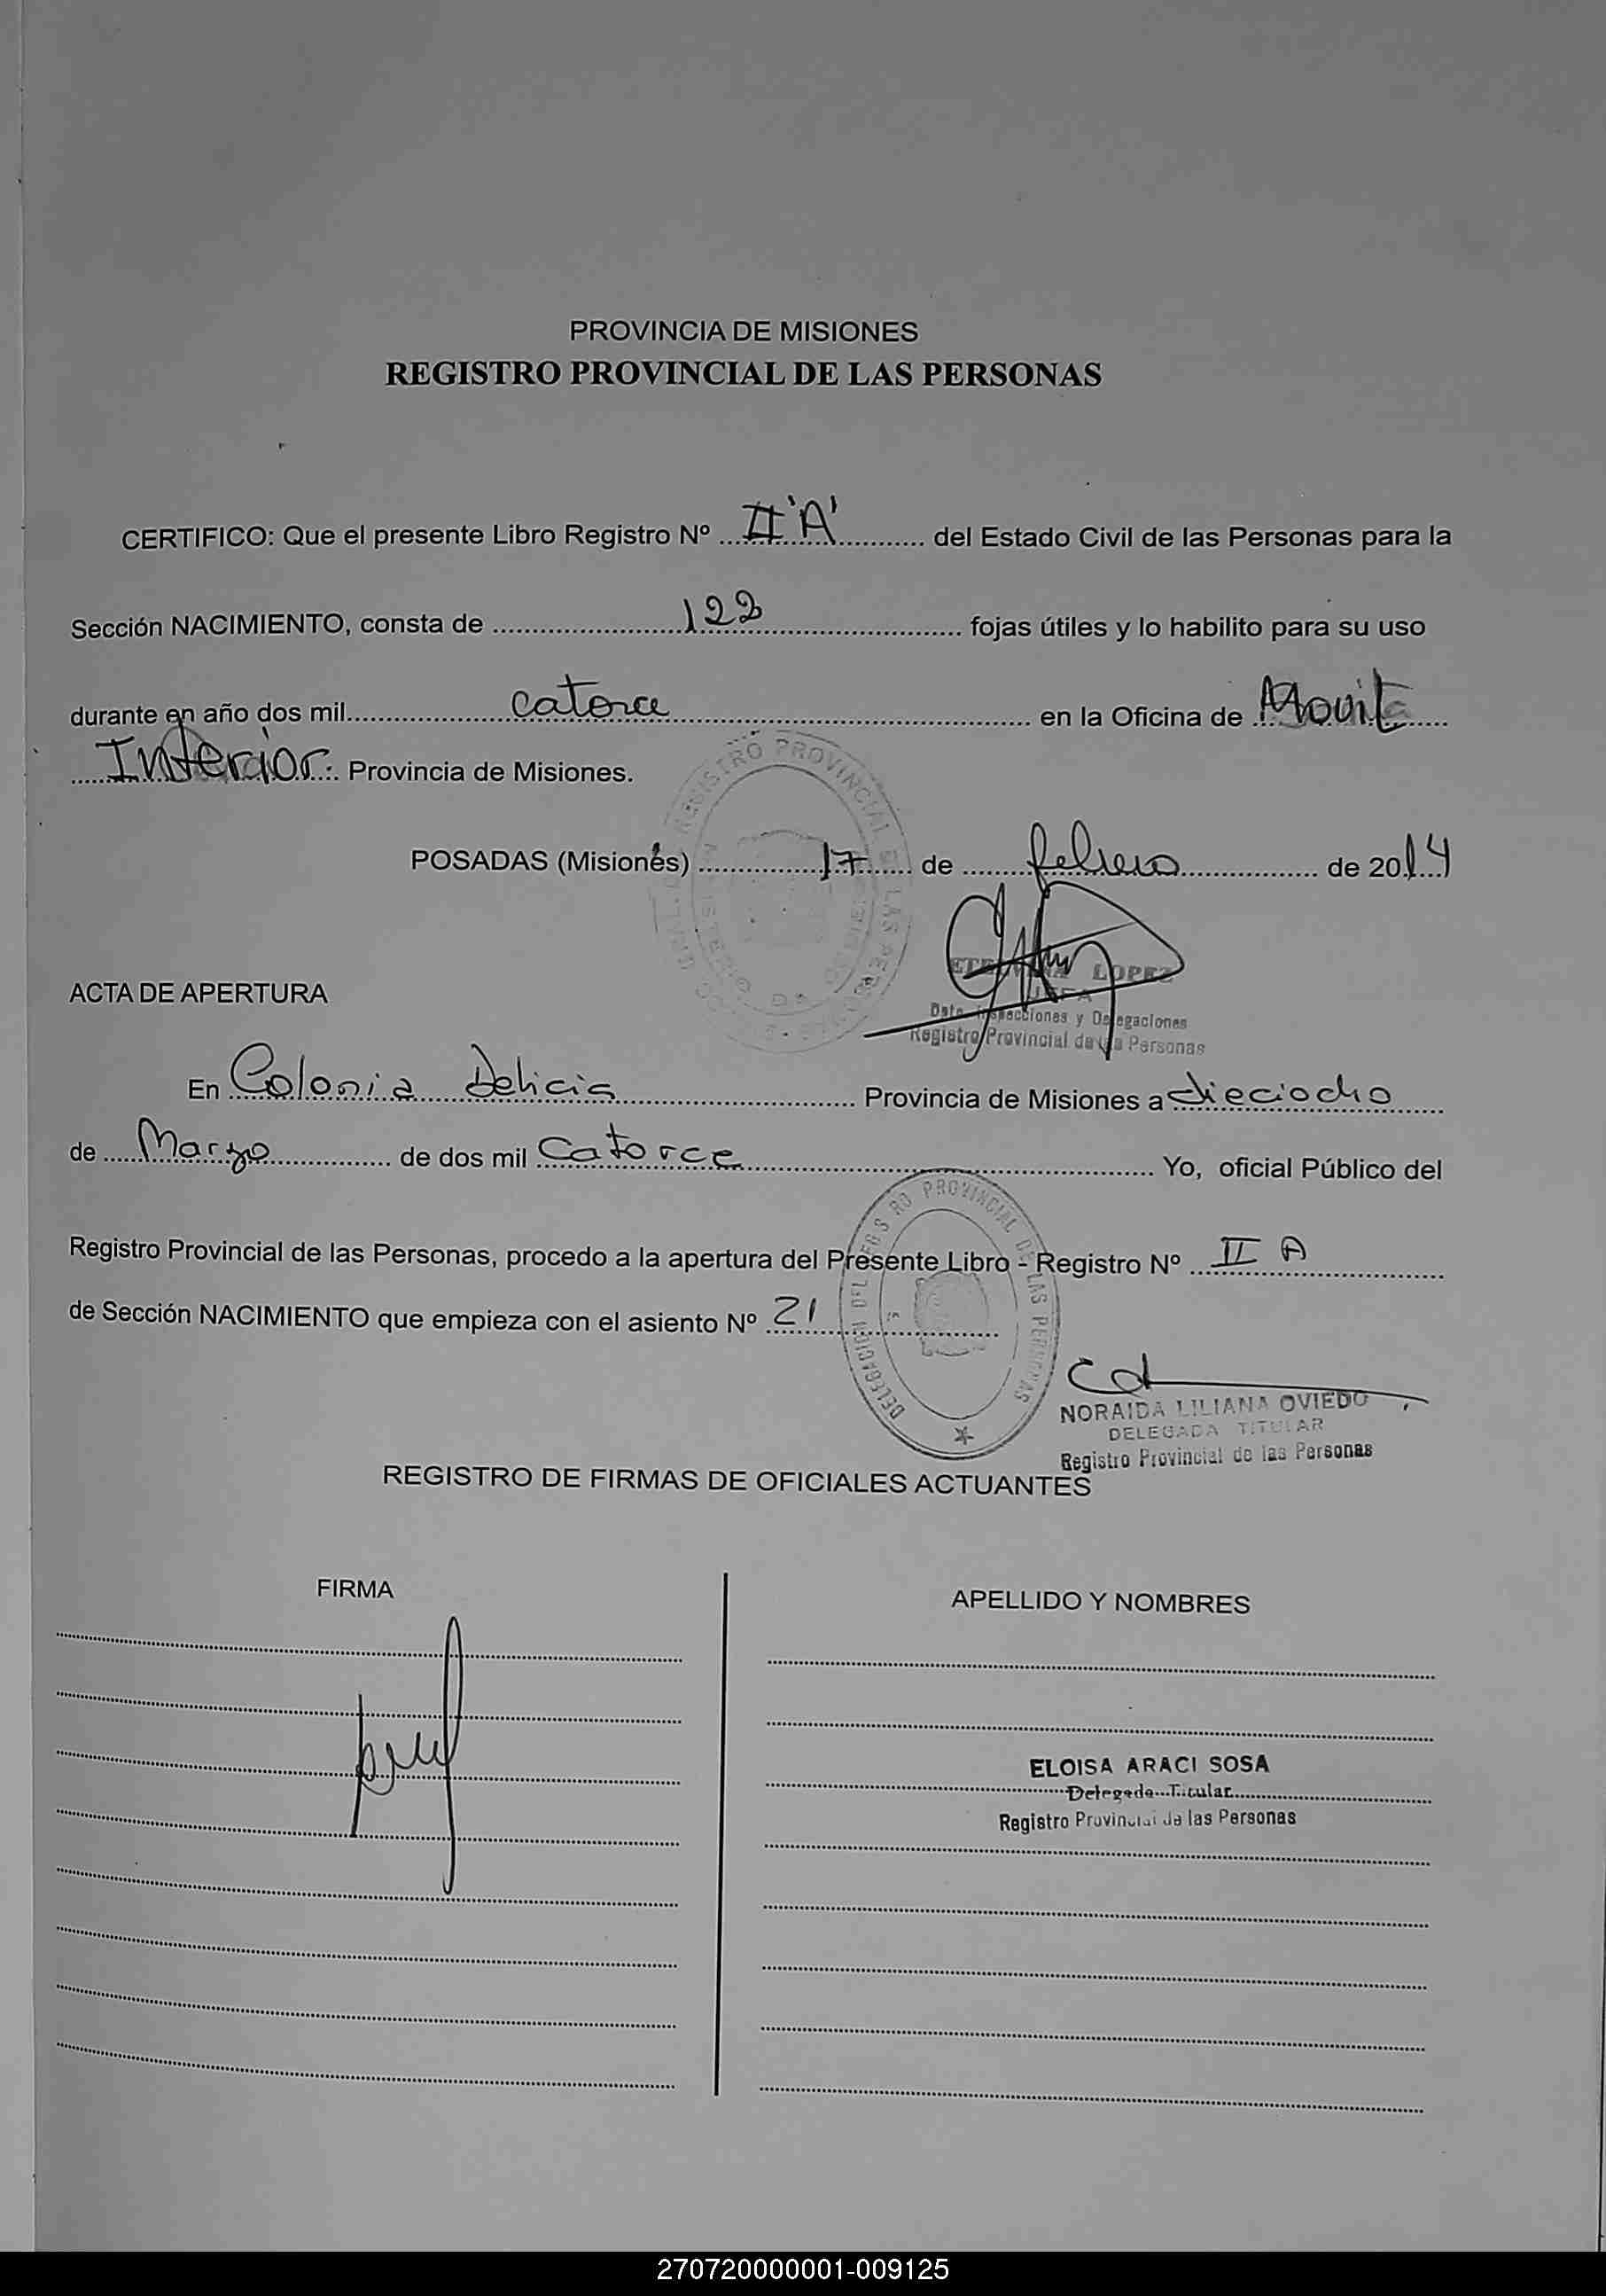 PROVINCIA DE MISIONES
REGISTRO PROVINCIAL DE LAS PERSONAS
CERTIFICO: Que el presente Libro Registro Nº II 'A' del Estado Civil de las Personas para la
Sección NACIMIENTO, consta de 122 fojas útiles y lo habilito para su uso
durante en año dos mil catorce en la Oficina de Movil
Interior. Provincia de Misiones.
POSADAS (Misiones) 17 de febrero de 2014
LOPEZ
JEFA
Dpto. Inspecciones y Delegaciones
Registro Provincial de las Personas
ACTA DE APERTURA
En Colonia Delicia Provincia de Misiones a dieciocho
de Marzo de dos mil Catorce Yo, oficial Público del
Registro Provincial de las Personas, procedo a la apertura del Presente Libro - Registro Nº II A
de Sección NACIMIENTO que empieza con el asiento Nº 21
DELEGACION DEL REGISTRO PROVINCIAL DE LAS PERSONAS
NORAIDA LILIANA OVIEDO
DELEGADA TITULAR
Registro Provincial de las Personas
REGISTRO DE FIRMAS DE OFICIALES ACTUANTES
FIRMA
APELLIDO Y NOMBRES
ELOISA ARACI SOSA
Delegada Titular
Registro Provincial de las Personas
270720000001-009125